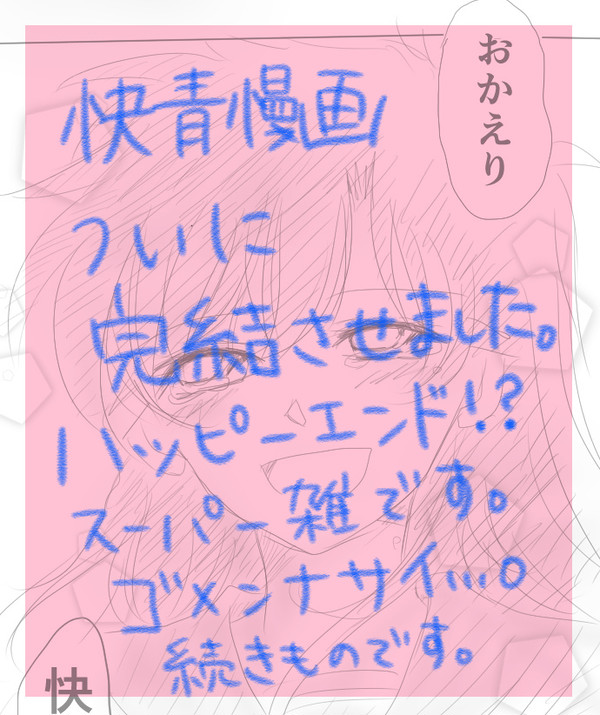 おかえり
快青慢画
ついに
完結させました。
ハッピーエンド!?
スーパー雑です。
ゴメンナサイ…。
続きものです。
快